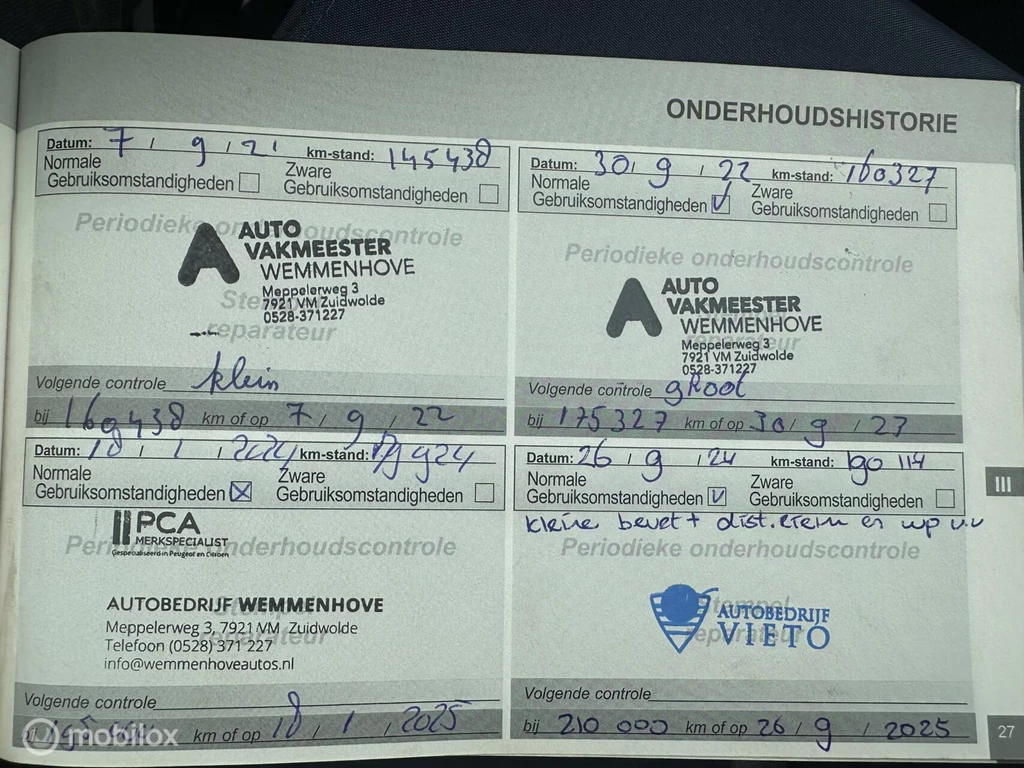 ONDERHOUDSHISTORIE
Datum: 7 / 9 / 21 km-stand: 145438
Normale Gebruiksomstandigheden
Zware Gebruiksomstandigheden
Periodieke onderhoudscontrole
AUTO
VAKMEESTER
WEMMENHOVE
Meppelerweg 3
7921 VM Zuidwolde
0528-371227
Stempel
reparateur
Volgende controle klein
bij 160438 km of op 7 / 9 / 22
Datum: 30 / 9 / 22 km-stand: 160327
Normale Gebruiksomstandigheden
Zware Gebruiksomstandigheden
Periodieke onderhoudscontrole
AUTO
VAKMEESTER
WEMMENHOVE
Meppelerweg 3
7921 VM Zuidwolde
0528-371227
Volgende controle gRoot
bij 175327 km of op 30 / 9 / 23
Datum: 18 / 1 / 2024 km-stand:
Normale Gebruiksomstandigheden
Zware Gebruiksomstandigheden
PCA
MERKSPECIALIST
Gespecialiseerd in Peugeot en Citroën
Periodieke onderhoudscontrole
Stempel
reparateur
AUTOBEDRIJF WEMMENHOVE
Meppelerweg 3, 7921 VM Zuidwolde
Telefoon (0528) 371 227
info@wemmenhoveautos.nl
Volgende controle
bij km of op 18 / 1 / 2025
Datum: 26 / 9 / 24 km-stand: 190 114
Normale Gebruiksomstandigheden
Zware Gebruiksomstandigheden
kleine beurt + dist.riem en wp v.v
Periodieke onderhoudscontrole
Stempel
reparateur
AUTOBEDRIJF
VIETO
Volgende controle
bij 210 000 km of op 26 / 9 / 2025
III
27
mobilox